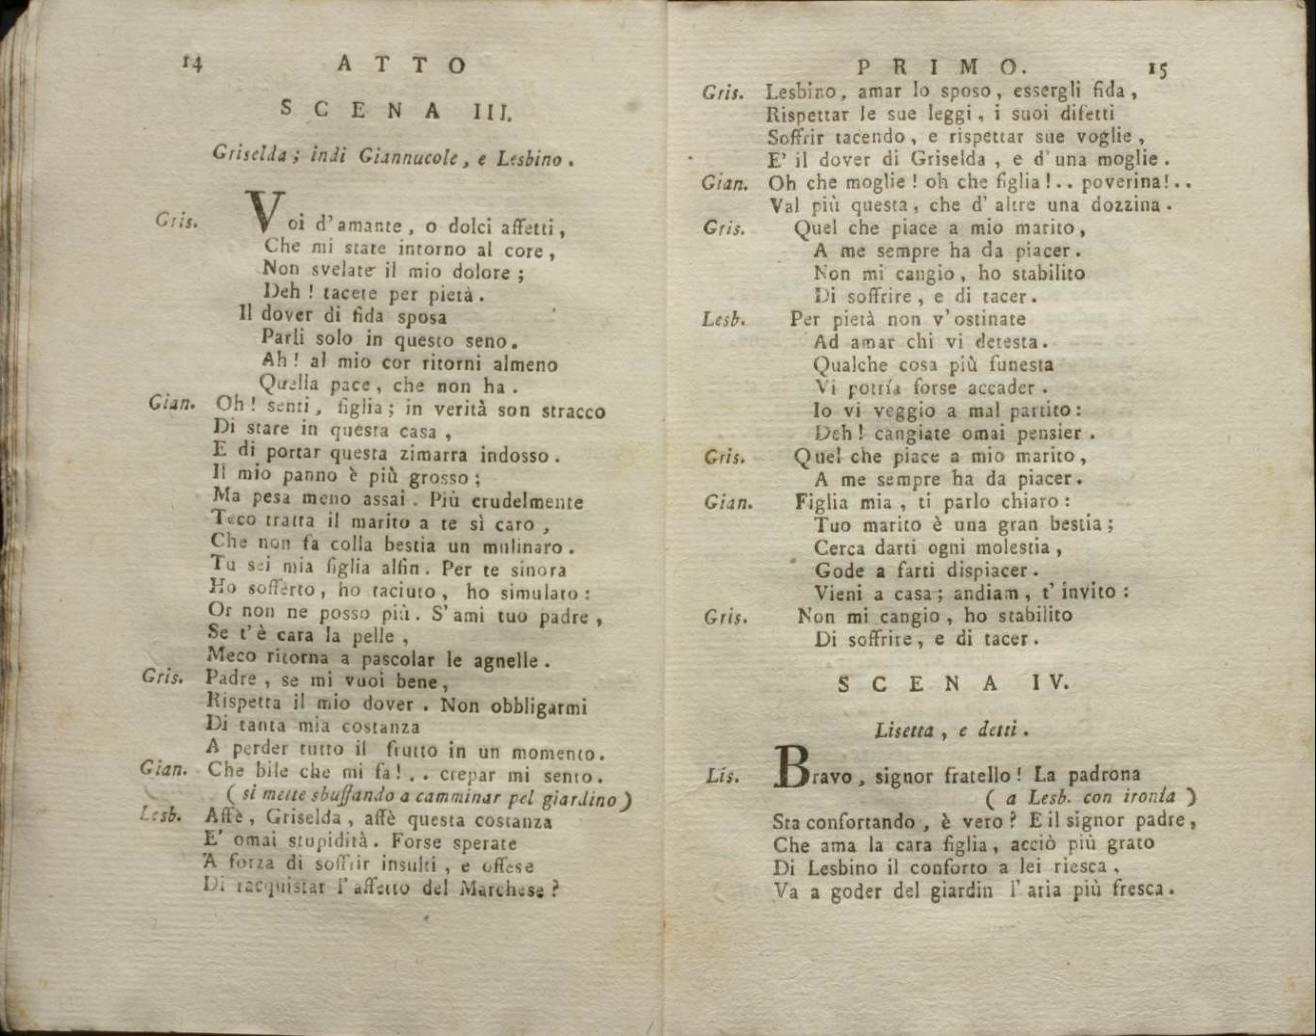 14 ATTO
SCENA III.
Griselda; indi Giannucole, e Lesbino.
Gris. Voi d'amante, o dolci affetti,
Che mi state intorno al core,
Non svelate il mio dolore;
Deh! tacete per pietà.
Il dover di fida sposa
Parli solo in questo seno.
Ah! al mio cor ritorni almeno
Quella pace, che non ha.
Gian. Oh! senti, figlia; in verità son stracco
Di stare in questa casa,
E di portar questa zimarra indosso.
Il mio panno è più grosso;
Ma pesa meno assai. Più crudelmente
Teco tratta il marito a te sì caro,
Che non fa colla bestia un mulinaro.
Tu sei mia figlia alfin. Per te sinora
Ho sofferto, ho taciuto, ho simulato:
Or non ne posso più. S'ami tuo padre,
Se t'è cara la pelle,
Meco ritorna a pascolar le agnelle.
Gris. Padre, se mi vuoi bene,
Rispetta il mio dover. Non obbligarmi
Di tanta mia costanza
A perder tutto il frutto in un momento.
Gian. Che bile che mi fa!.. crepar mi sento.
(si mette sbuffando a camminar pel giardino)
Lesb. Affè, Griselda, affè questa costanza
E' omai stupidità. Forse sperate
A forza di soffrir insulti, e offese
Di racquistar l'affetto del Marchese?
PRIMO. 15
Gris. Lesbino, amar lo sposo, essergli fida,
Rispettar le sue leggi, i suoi difetti
Soffrir tacendo, e rispettar sue voglie,
E' il dover di Griselda, e d'una moglie.
Gian. Oh che moglie! oh che figlia!.. poverina!..
Val più questa, che d'altre una dozzina.
Gris. Quel che piace a mio marito,
A me sempre ha da piacer.
Non mi cangio, ho stabilito
Di soffrire, e di tacer.
Lesb. Per pietà non v'ostinate
Ad amar chi vi detesta.
Qualche cosa più funesta
Vi potría forse accader.
Io vi veggio a mal partito:
Deh! cangiate omai pensier.
Gris. Quel che piace a mio marito,
A me sempre ha da piacer.
Gian. Figlia mia, ti parlo chiaro:
Tuo marito è una gran bestia;
Cerca darti ogni molestia,
Gode a farti dispiacer.
Vieni a casa; andiam, t'invito:
Gris. Non mi cangio, ho stabilito
Di soffrire, e di tacer.
SCENA IV.
Lisetta, e detti.
Lis. Bravo, signor fratello! La padrona
(a Lesb. con ironía)
Sta confortando, è vero? E il signor padre,
Che ama la cara figlia, acciò più grato
Di Lesbino il conforto a lei riesca,
Va a goder del giardin l'aria più fresca.